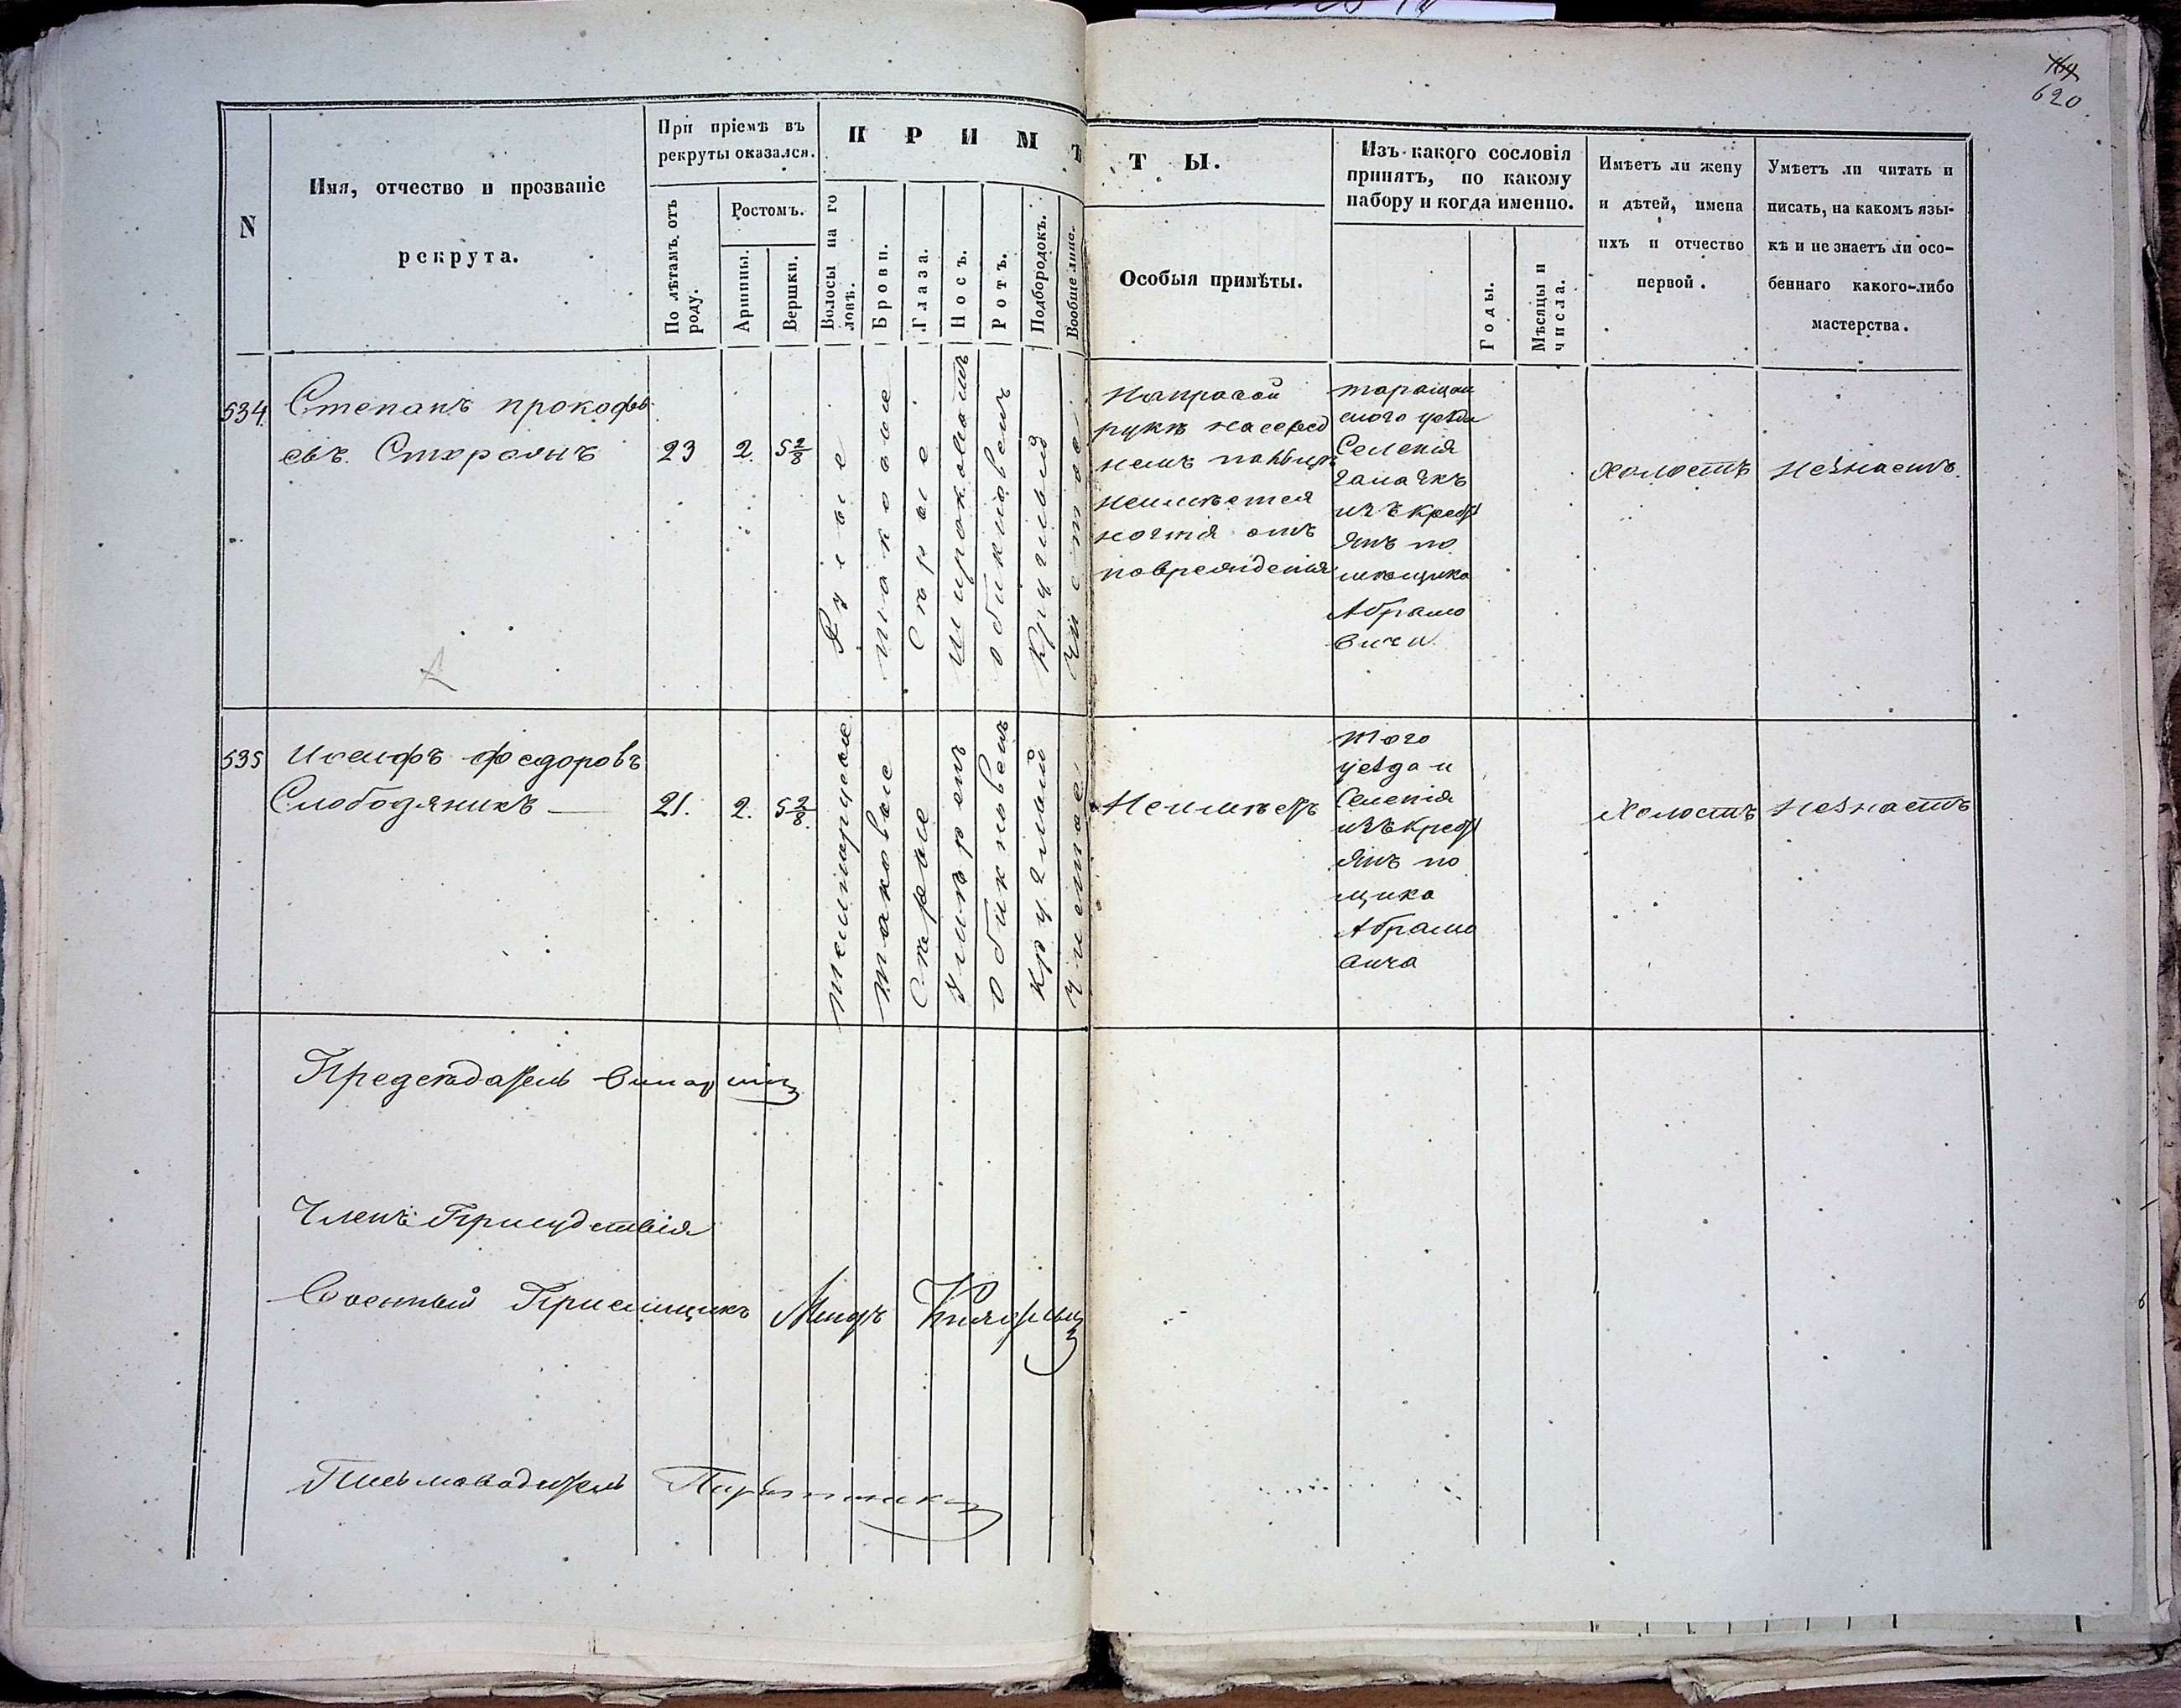 164
620
N
Имя, отчество и прозваніе
рекрута.
При пріемѣ въ
рекруты оказался.
По лѣтамъ отъ
роду.
Ростомъ.
Аршины.
Вершки.
ПРИМѢТЫ.
Волосы на го
ловѣ.
Брови.
Глаза.
Носъ.
Ротъ.
Подбородокъ.
Вообще лице.
Особыя примѣты.
Изъ какого сословія
принятъ, по какому
набору и когда именно.
Годы.
Мѣсяцы и
числа.
Имѣетъ ли жену
и дѣтей, имена
ихъ и отчество
первой.
Умѣетъ ли читать и
писать, на какомъ язы-
кѣ и не знаетъ ли осо-
беннаго какого-либо
мастерства.
534
Степанъ Прокофь
евъ
23
2.
5 2/8
Русые
таковые
Сѣрые
обикновенъ
Круглый
чистое
На правой
рукѣ на серед
немъ пальцѣ
неимѣется
ногтя отъ
поврежденія
таращан
ского уезда
Селенія
изъ крест
янъ по
мѣщика
Абрамо
вича
Холостъ
Незнаетъ.
535
Иосифъ Федоровъ
Слободяникъ
21.
2.
5 2/8.
Темнорусые
Таковые
Сѣрые
Умѣренъ
Обикновенъ
Круглый
чистое
Неимѣетъ
Того
уезда и
Селенія
изъ крест
янъ по
щика
Абрамо
вича
Холостъ
Незнаетъ
Председатель
Членъ Присудствія
Военный Приемщикъ
Письмоводитель